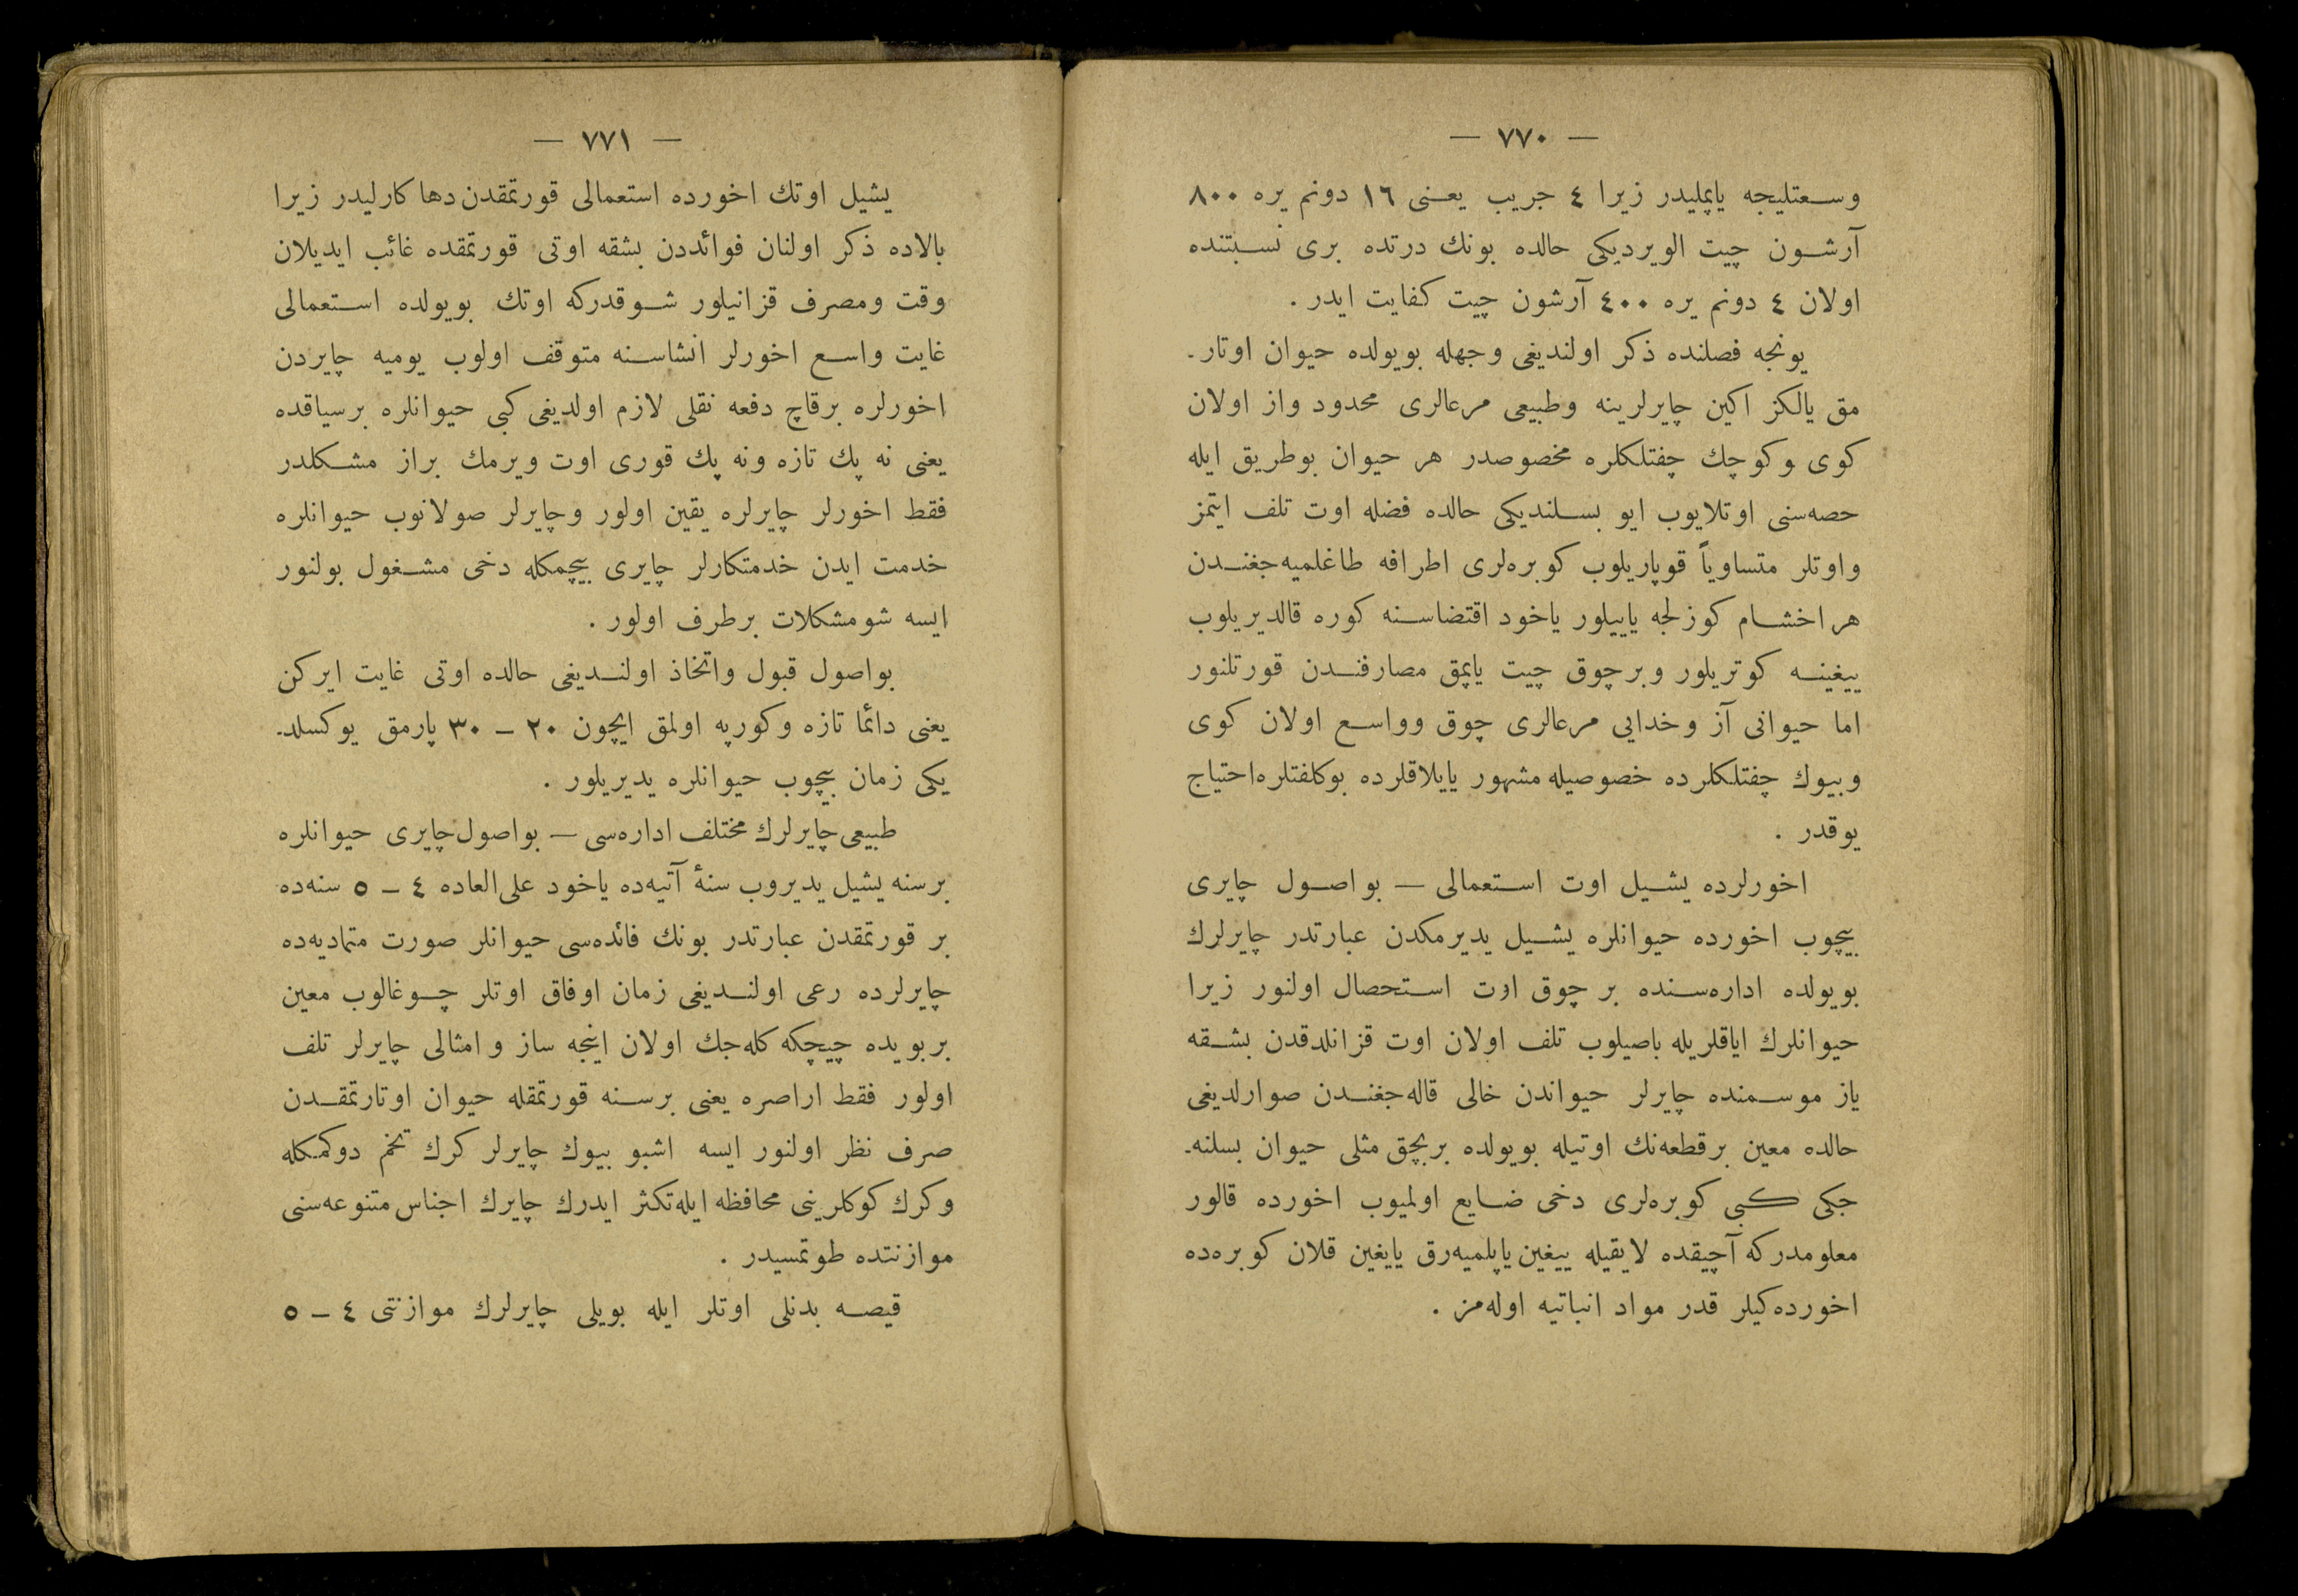 — ٧٧٠ —
وسعتليجه ياپمليدر زيرا ٤ جريب يعنى ١٦ دونم يره ٨٠٠
آرشون چيت الويرديكى حالده بونك درتده برى نسبتنده
اولان ٤ دونم يره ٤٠٠ آرشون چيت كفايت ايدر .
يونجه فصلنده ذكر اولنديغى وجهله بويولده حيوان اوتار-
مق يالكز اكين چايرلرينه وطبيعى مرعالرى محدود واز اولان
كوى وكوچك چفتلكلره مخصوصدر هر حيوان بوطريق ايله
حصه‌سنى اوتلايوب ايو بسلنديكى حالده فضله اوت تلف ايتمز
واوتلر متساوياً قوپاريلوب كوبره‌لرى اطرافه طاغلميه‌جغندن
هر اخشام كوزلجه ياييلور ياخود اقتضاسنه كوره قالديريلوب
ييغينه كوتريلور وبر چوق چيت ياپمق مصارفندن قورتلنور
اما حيوانى آز وخدايى مرعالرى چوق وواسع اولان كوى
وبيوك چفتلكلرده خصوصيله مشهور يايلاقلرده بوكلفتلره احتياج
يوقدر .
اخورلرده يشيل اوت استعمالى — بو اصول چايرى
بيچوب اخورده حيوانلره يشيل يديرمكدن عبارتدر چايرلرك
بويولده اداره‌سنده بر چوق اوت استحصال اولنور زيرا
حيوانلرك اياقلريله باصيلوب تلف اولان اوت قزانلدقدن بشقه
ياز موسمنده چايرلر حيواندن خالى قاله‌جغندن صوارلديغى
حالده معين بر قطعه‌نك اوتيله بويولده بربچق مثلى حيوان بسلنه-
جكى كبى كوبره‌لرى دخى ضايع اولميوب اخورده قالور
معلومدركه آچيقده لايقيله ييغين ياپلميه‌رق يايغين قلان كوبره‌ده
اخورده‌كيلر قدر مواد انباتيه اوله‌مز .
— ٧٧١ —
يشيل اوتك اخورده استعمالى قورتمقدن دها كارليدر زيرا
بالاده ذكر اولنان فوائددن بشقه اوتى قورتمقده غائب ايديلان
وقت ومصرف قزانيلور شو قدركه اوتك بويولده استعمالى
غايت واسع اخورلر انشاسنه متوقف اولوب يوميه چايردن
اخورلره برقاچ دفعه نقلى لازم اولديغى كبى حيوانلره برسياقده
يعنى نه پك تازه ونه پك قورى اوت ويرمك براز مشكلدر
فقط اخورلر چايرلره يقين اولور وچايرلر صولانوب حيوانلره
خدمت ايدن خدمتكارلر چايرى بيچمكله دخى مشغول بولنور
ايسه شو مشكلات برطرف اولور .
بواصول قبول واتخاذ اولنديغى حالده اوتى غايت ايركن
يعنى دائما تازه وكورپه اولمق ايچون ٢٠ – ٣٠ پارمق يوكسلد-
يكى زمان بيچوب حيوانلره يديريلور .
طبيعى چايرلرك مختلف اداره‌سى — بواصول چايرى حيوانلره
برسنه يشيل يديروب سنهٔ آتيه‌ده ياخود على‌العاده ٤ – ٥ سنه‌ده
بر قورتمقدن عبارتدر بونك فائده‌سى حيوانلر صورت متماديه‌ده
چايرلرده رعى اولنديغى زمان اوفاق اوتلر چوغالوب معين
بر بويده چيچكه كله‌جك اولان اينجه ساز و امثالى چايرلر تلف
اولور فقط اراصره يعنى برسنه قورتمقله حيوان اوتارتمقدن
صرف نظر اولنور ايسه اشبو بيوك چايرلر كرك تخم دوكمكله
وكرك كوكلرينى محافظه ايله تكثر ايدرك چايرك اجناس متنوعه‌سنى
موازنتده طوتمسيدر .
قيصه بدنلى اوتلر ايله بويلى چايرلرك موازنتى ٤ – ٥